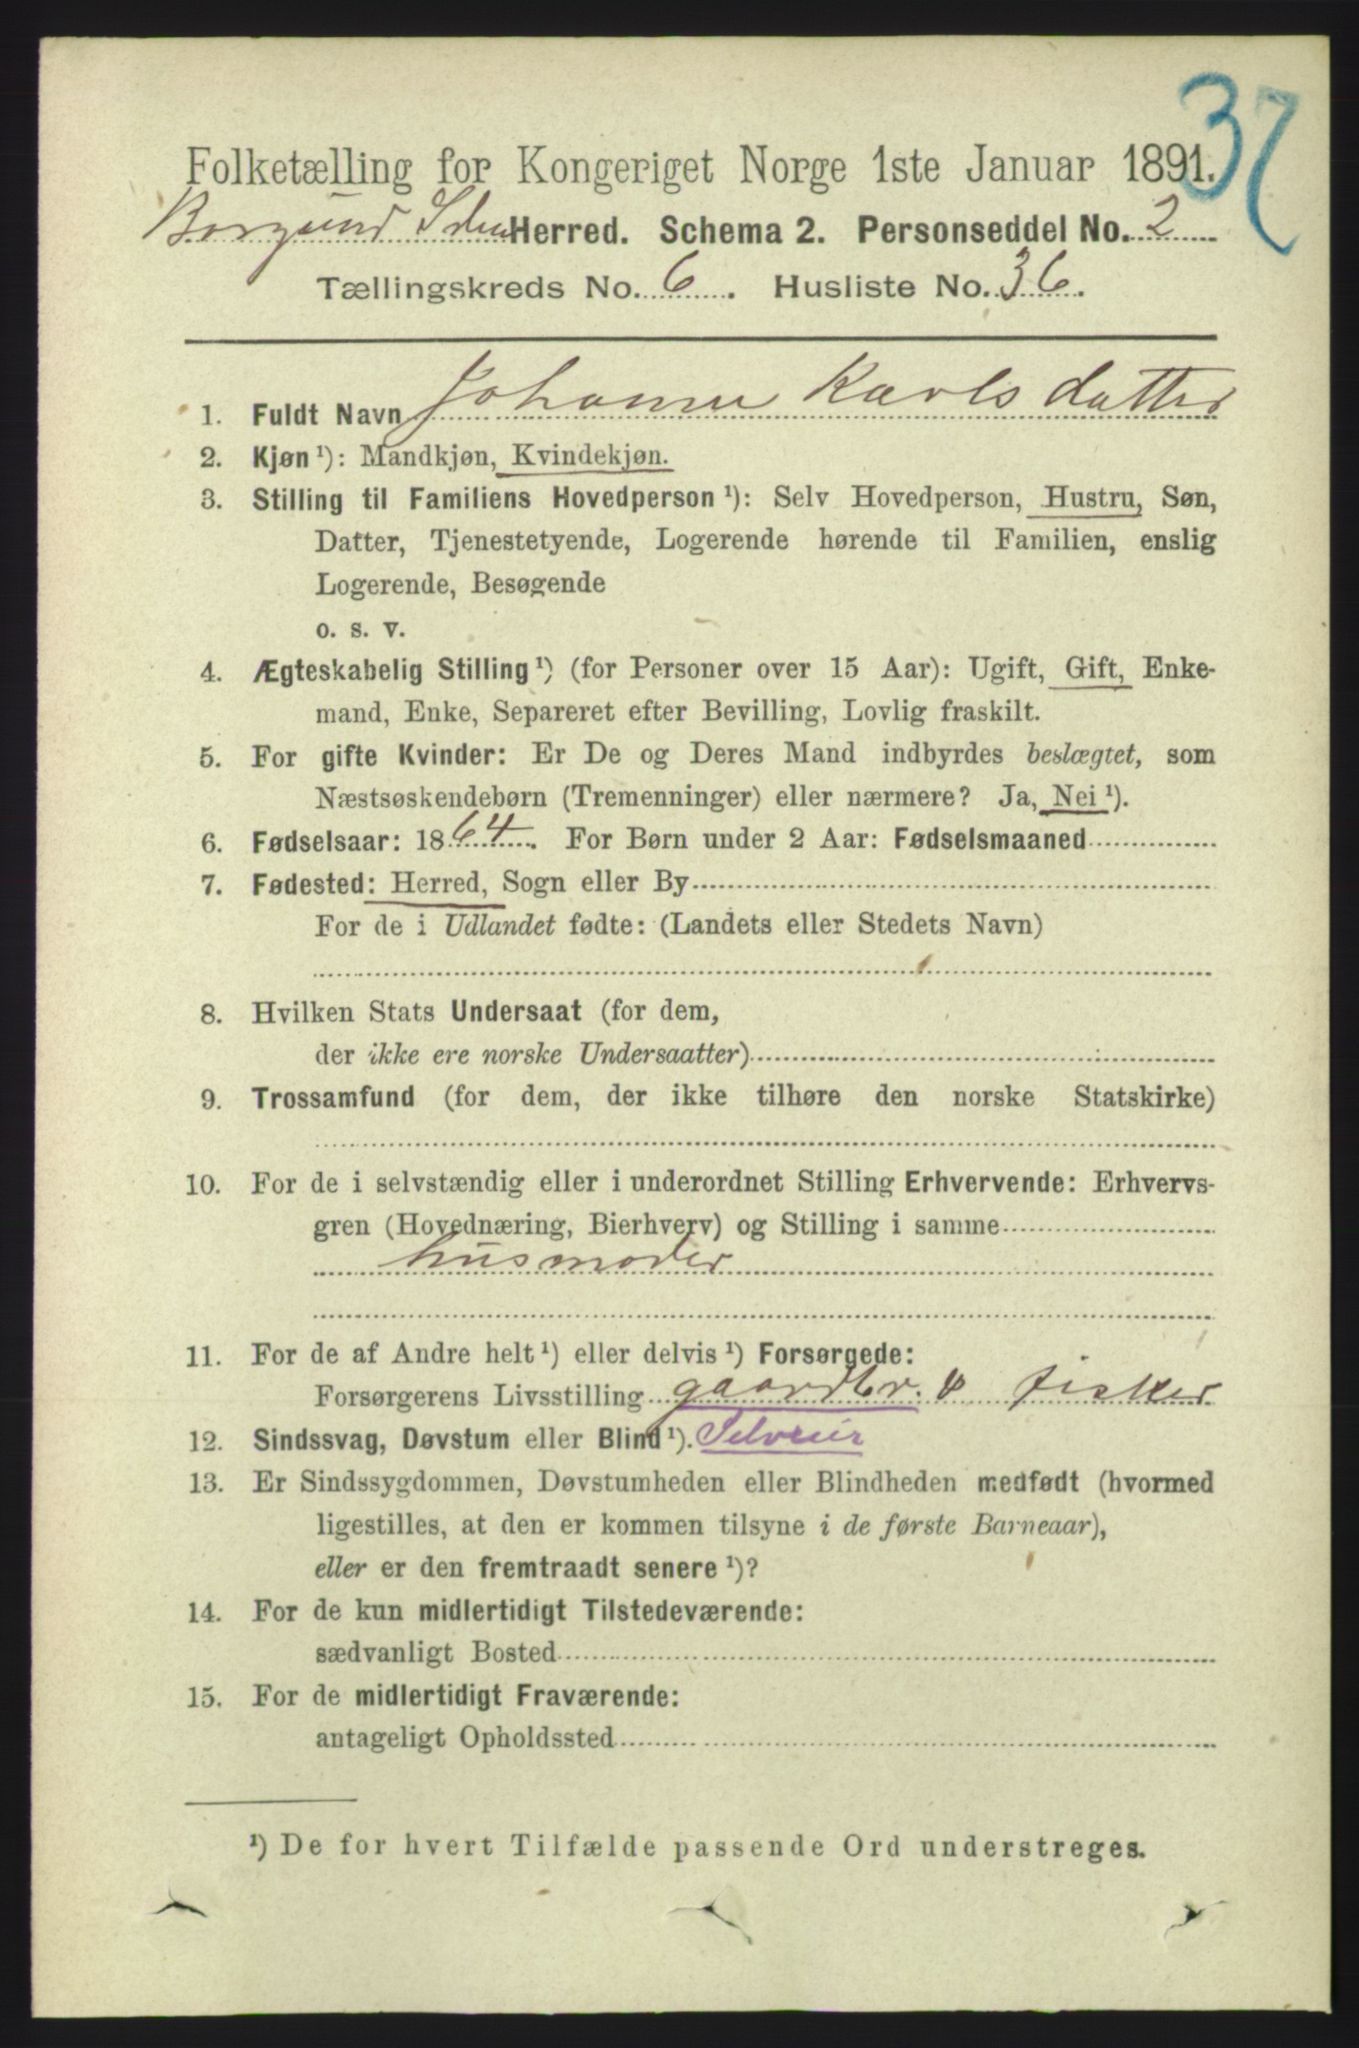 37
Folketælling for Kongeriget Norge 1ste Januar 1891.
Borgund Herred. Schema 2. Personseddel No. 2
Tællingskreds No. 6. Husliste No. 36.
1. Fuldt Navn Johanne Karls datter
2. Kjøn ¹): Mandkjøn, Kvindekjøn.
3. Stilling til Familiens Hovedperson ¹): Selv Hovedperson, Hustru, Søn,
Datter, Tjenestetyende, Logerende hørende til Familien, enslig
Logerende, Besøgende
o. s. v.
4. Ægteskabelig Stilling ¹) (for Personer over 15 Aar): Ugift, Gift, Enke-
mand, Enke, Separeret efter Bevilling, Lovlig fraskilt.
5. For gifte Kvinder: Er De og Deres Mand indbyrdes beslægtet, som
Næstsøskendebørn (Tremenninger) eller nærmere? Ja, Nei ¹).
6. Fødselsaar: 1864. For Børn under 2 Aar: Fødselsmaaned
7. Fødested: Herred, Sogn eller By
For de i Udlandet fødte: (Landets eller Stedets Navn)
8. Hvilken Stats Undersaat (for dem,
der ikke ere norske Undersaatter)
9. Trossamfund (for dem, der ikke tilhøre den norske Statskirke)
10. For de i selvstændig eller i underordnet Stilling Erhvervende: Erhvervs-
gren (Hovednæring, Bierhverv) og Stilling i samme
husmoder
11. For de af Andre helt ¹) eller delvis ¹) Forsørgede:
Forsørgerens Livsstilling gaardbr. & fisker
12. Sindssvag, Døvstum eller Blind ¹). Selveier
13. Er Sindssygdommen, Døvstumheden eller Blindheden medfødt (hvormed
ligestilles, at den er kommen tilsyne i de første Barneaar),
eller er den fremtraadt senere ¹)?
14. For de kun midlertidigt Tilstedeværende:
sædvanligt Bosted
15. For de midlertidigt Fraværende:
antageligt Opholdssted
¹) De for hvert Tilfælde passende Ord understreges.